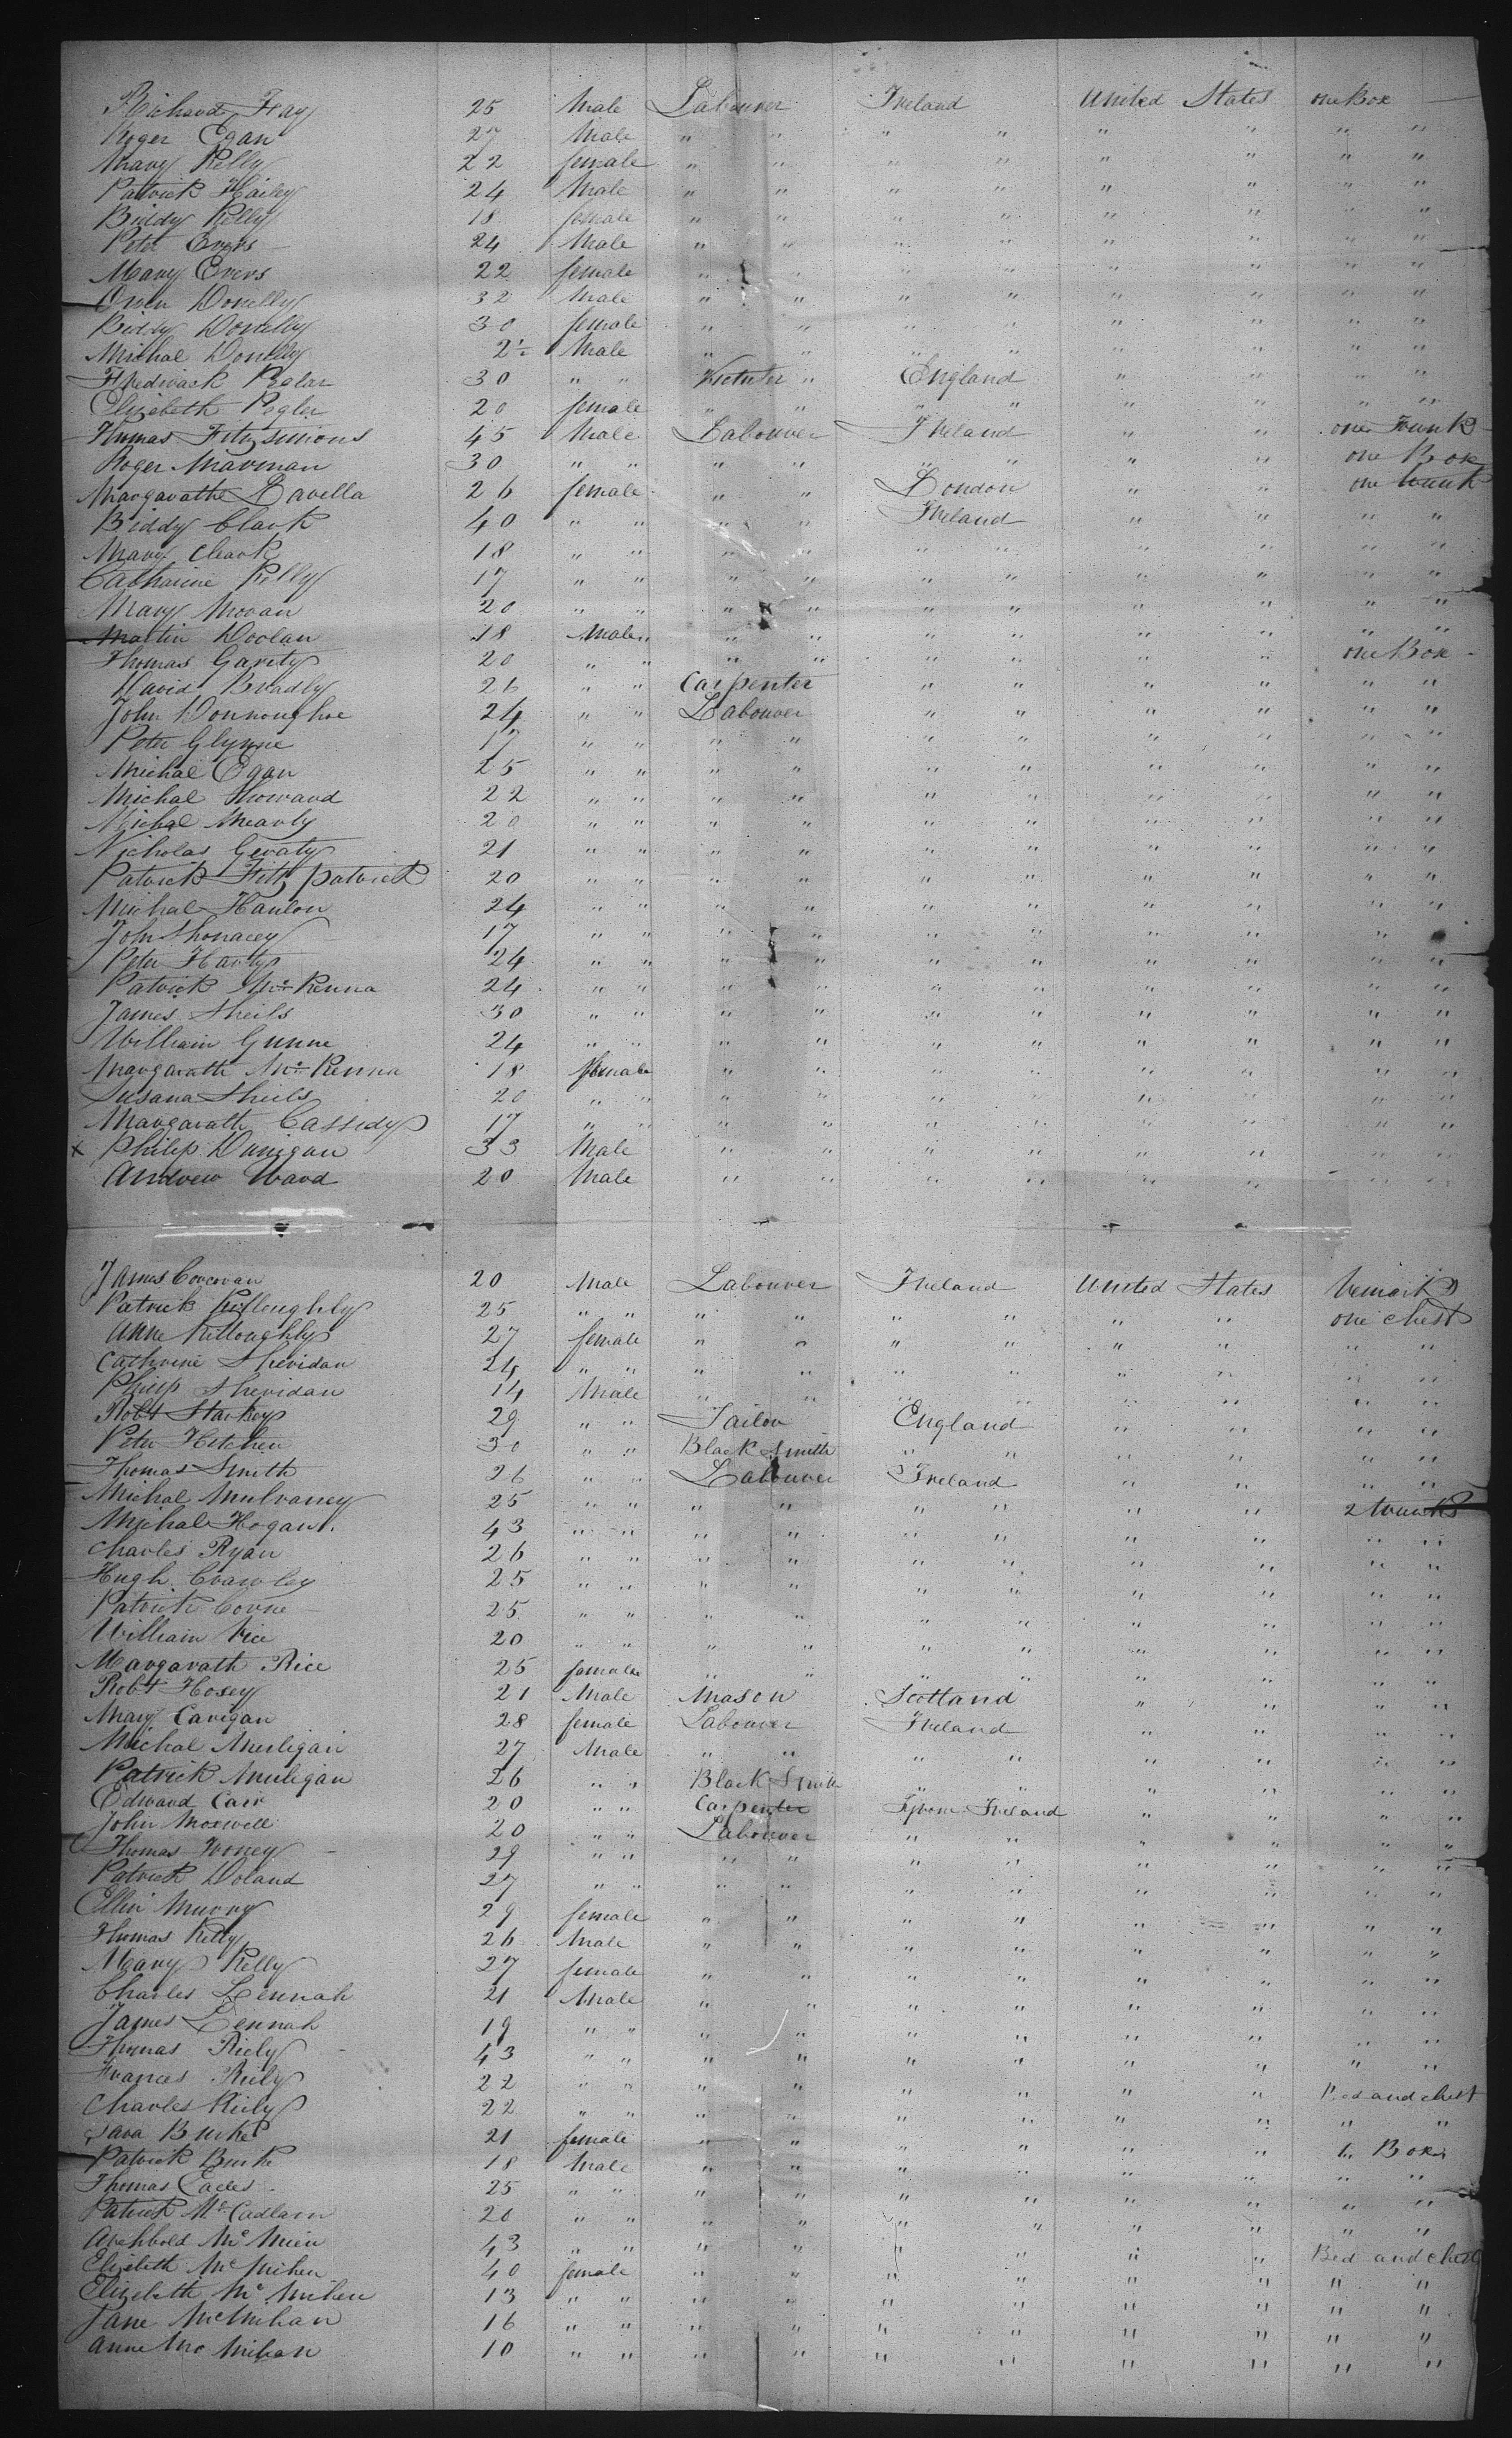 Richard Fay 25 Male Labourer Ireland United States one Box
Roger Egan 27 Male " " " " " " " "
Mary Kelly 22 female " " " " " " " "
Patrick Hailey 24 Male " " " " " " " "
Biddy Kelly 18 female " " " " " " " "
Peter Evers 24 Male " " " " " " " "
Mary Evers 22 female " " " " " " " "
Owen Donelly 32 Male " " " " " " " "
Biddy Donelly 30 female " " " " " " " "
Michal Donelly 2½ Male " " " " " " " "
Peglar 30 " " " England " " " "
Elizebeth Pegler 20 female " " " " " " " "
Thomas Fitzsimions 45 Male Labourer Ireland " " one Trunk
Roger Marman 30 " " " " " " " " one Box
Margarathe Lavella 26 female " " London " " one trunk
Biddy Clark 40 " " " " Ireland " " " "
Mary Clark 18 " " " " " " " " " "
Catharine Kelly 17 " " " " " " " " " "
Mary Moran 20 " " " " " " " " " "
Martin Doolan 18 Male " " " " " " " "
Thomas Garity 20 " " " " " " " " one Box
David Bradly 26 " " Carpenter " " " " " "
John Donnoughoe 24 " " Labourer " " " " " "
Peter Glynne 17 " " " " " " " " " "
Michal Egan 25 " " " " " " " " " "
Michal Howard 22 " " " " " " " " " "
Michal Mearly 20 " " " " " " " " " "
Nicholas Geraty 21 " " " " " " " " " "
Patrick Fitz patrick 20 " " " " " " " " " "
Michal Hanlon 24 " " " " " " " " " "
John 17 " " " " " " " " " "
Peter Harty 24 " " " " " " " " " "
Patrick Mc Kenna 24 " " " " " " " " " "
James Sheils 30 " " " " " " " " " "
William Gunne 24 " " " " " " " " " "
Margarath Mc Kenna 18 female " " " " " " " "
Susana Sheils 20 " " " " " " " " " "
Margarath Cassidy 17 " " " " " " " " " "
x Philip Dunigan 33 Male " " " " " " " "
Andrew Ward 20 Male " " " " " " " "
James Corcoran 20 Male Labourer Ireland United States remark
Patrick Killoughly 25 " " " " " " " " one chest
Anne Killoughly 27 female " " " " " " " "
Cathrine Sheridan 24 " " " " " " " " " "
Philip Sheridan 14 Male " " " " " " " "
Robt Starkey 29 " " Tailor England " " " "
Peter Hitchen 30 " " Black Smith " " " " " "
Thomas Smith 26 " " Labourer Ireland " " " "
Michal Mulvaney 25 " " " " " " " " 2 trunks
Michal Hogan 43 " " " " " " " " " "
Charles Ryan 26 " " " " " " " " " "
Hugh Crawley 25 " " " " " " " " " "
Patrick Corne 25 " " " " " " " " " "
William Rice 20 " " " " " " " " " "
Margarath Rice 25 female " " " " " " " "
Robt Hosey 21 Male Mason Scotland " " " "
Mary Carigan 28 female Labourer Ireland " " " "
Michal Muligan 27 Male " " " " " " " "
Patrick Muligan 26 " " Black Smith " " " " " "
Edward Carr 20 " " Carpenter Tyrone Ireland " " " "
John Maxwell 20 " " Labourer " " " " " "
Thomas 29 " " " " " " " " " "
Patrick Doland 27 " " " " " " " " " "
Ellin Murry 29 female " " " " " " " "
Thomas Kelly 26 Male " " " " " " " "
Mary Kelly 27 female " " " " " " " "
Charles Lennah 21 Male " " " " " " " "
James Lennah 19 " " " " " " " " " "
Thomas Riely 43 " " " " " " " " " "
Frances Riely 22 " " " " " " " " Bed and chest
Charles Riely 22 " " " " " " " " " "
Sara Burke 21 female " " " " " " Box
Patrick Burke 18 Male " " " " " " " "
Thomas Eacles 25 " " " " " " " " " "
Patrick Mc Cadlam 20 " " " " " " " " " "
Archbold Mc 43 " " " " " " " " Bed and chest
Elizebeth Mc Mihen 40 female " " " " " " " "
Elizebeth Mc Mihen 13 " " " " " " " " " "
Jane McMihan 16 " " " " " " " " " "
Anne Mc Mihan 10 " " " " " " " " " "